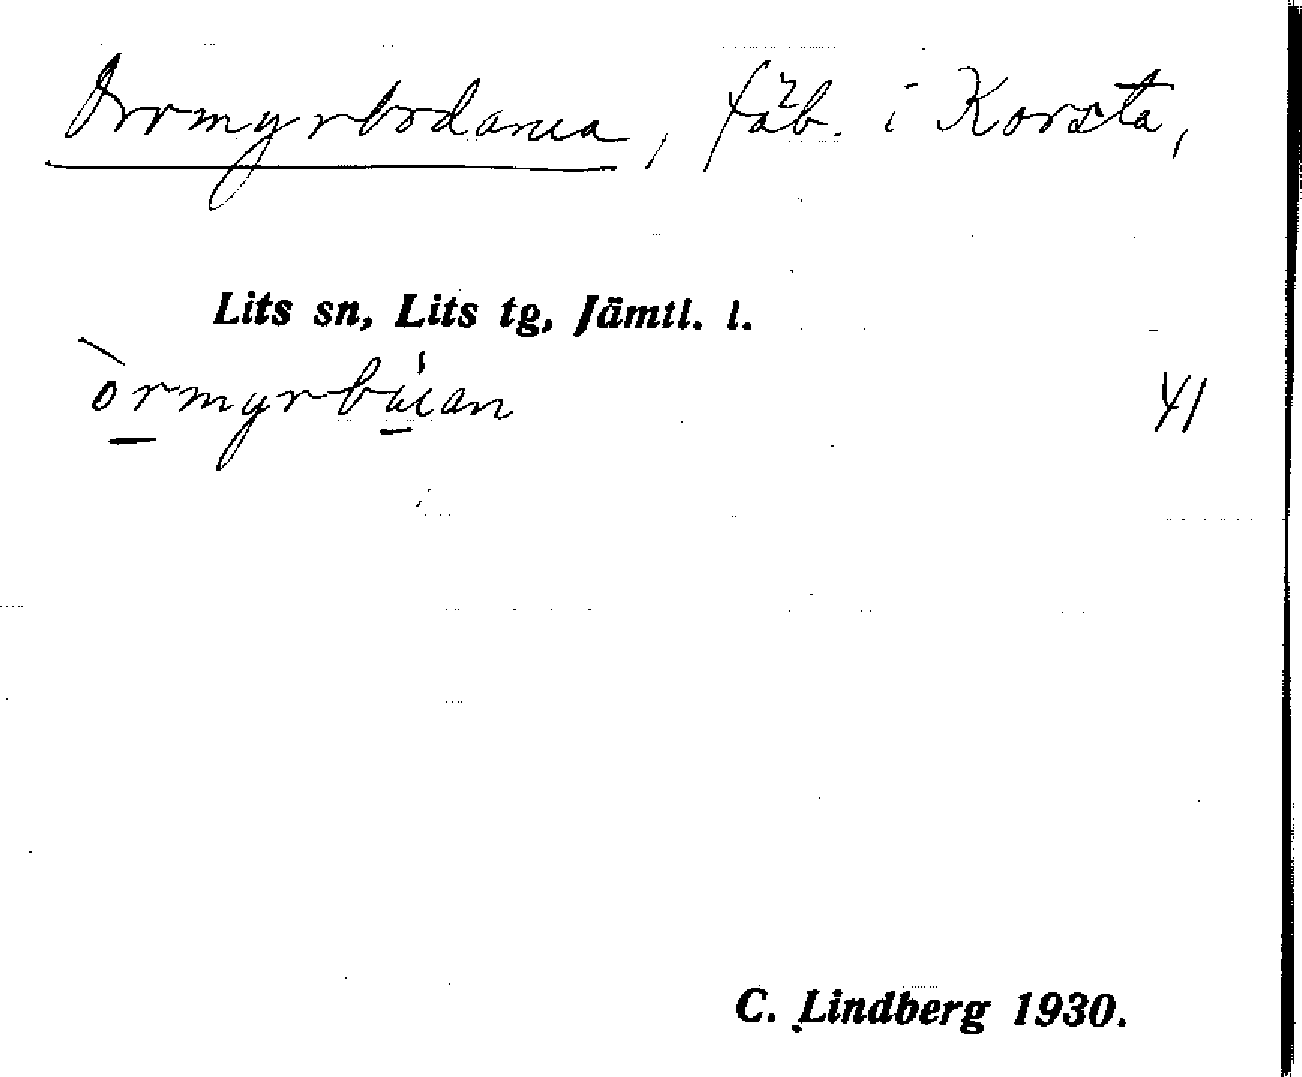 Orrmyrbodarna, fäb. i Korsta,
Lits sn, Lits tg, Jämtl. l.
òrmyrbúan
41
C. Lindberg 1930.